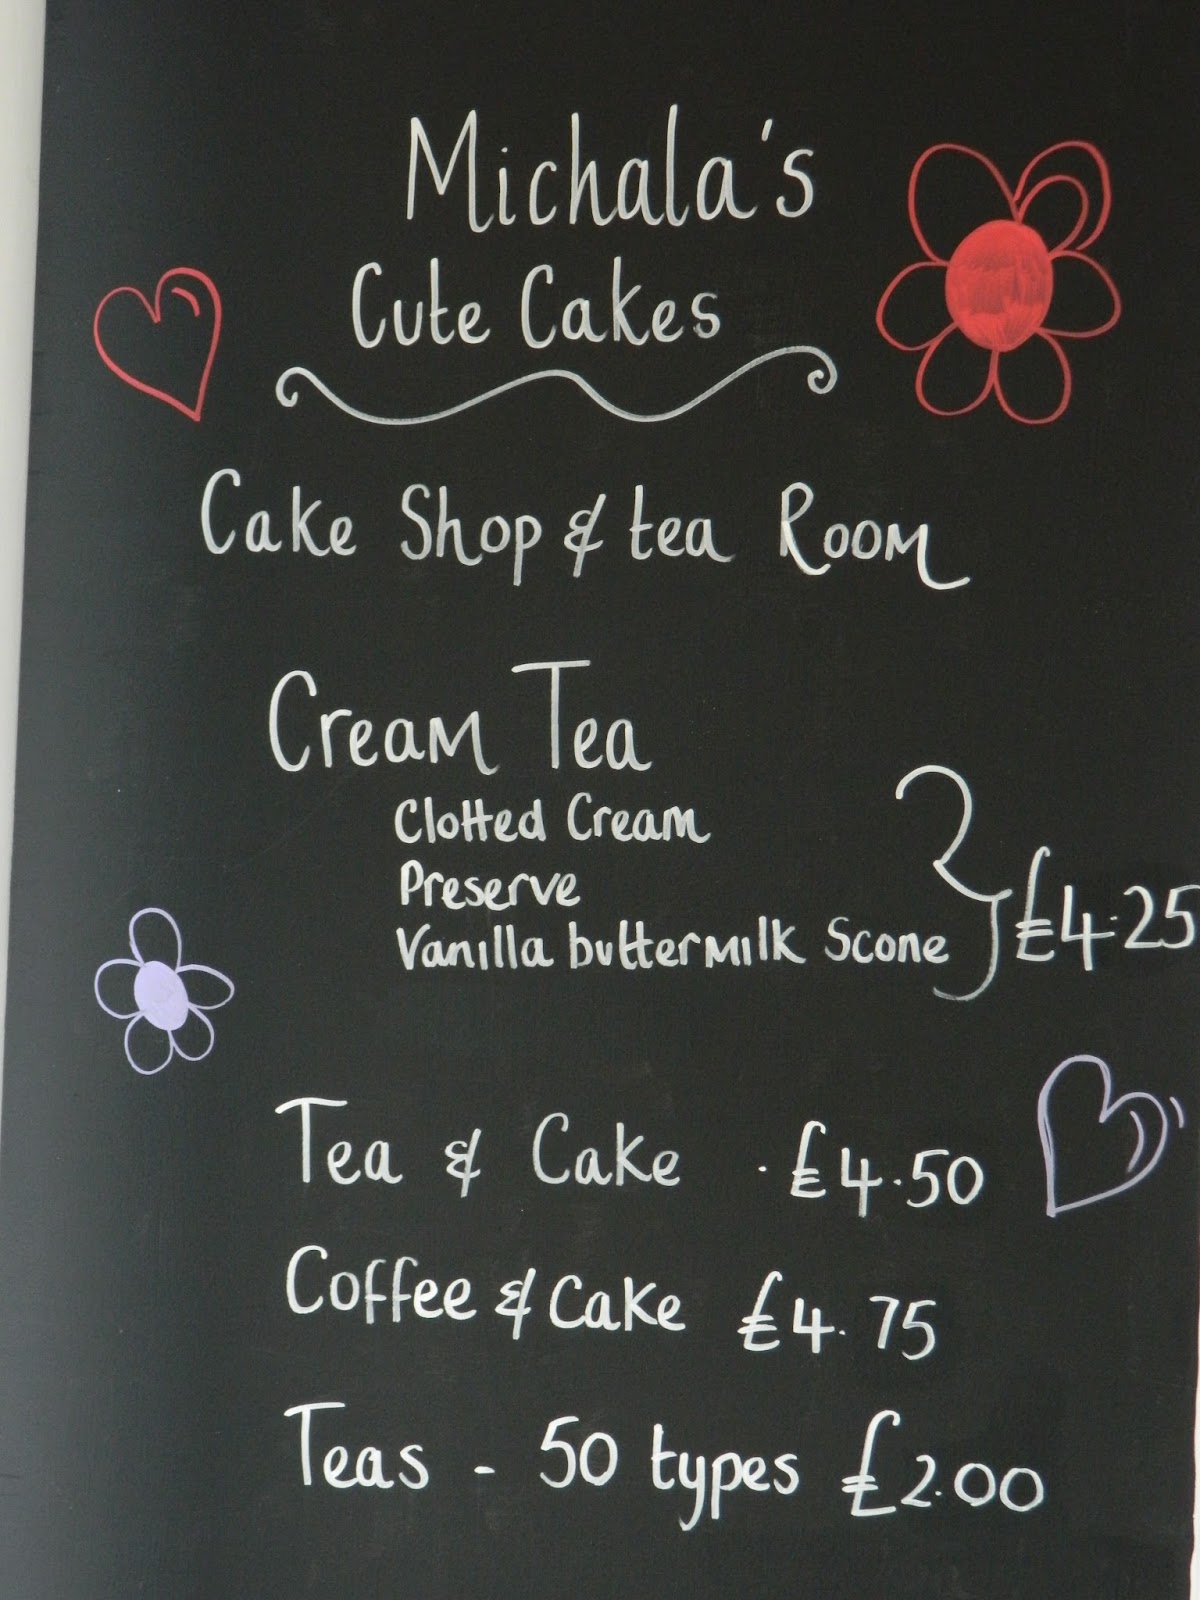 Michala's
Cute Cakes
Cake Shop & tea Room
Cream Tea
Clotted Cream
Preserve
Vanilla buttermilk Scone
£4.25
Tea & Cake . £4.50
Coffee & Cake £4.75
Teas - 50 types £2.00